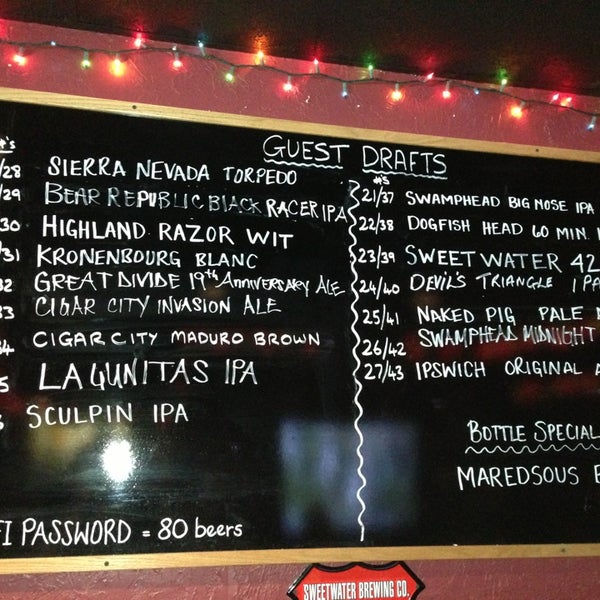 GUEST DRAFTS
#'s
/28 SIERRA NEVADA TORPEDO
/29 BEAR REPUBLIC BLACK RACER IPA
30 HIGHLAND RAZOR WIT
/31 KRONENBOURG BLANC
32 GREAT DIVIDE 19th ANNIVERSARY ALE
33 CIGAR CITY INVASION ALE
34 CIGAR CITY MADURO BROWN
5 LAGUNITAS IPA
SCULPIN IPA
FI PASSWORD = 80 beers
#'s
21/37 SWAMPHEAD BIG NOSE IPA
22/38 DOGFISH HEAD 60 MIN.
23/39 SWEETWATER 42
24/40 DEVIL'S TRIANGLE IPA
25/41 NAKED PIG PALE
26/42 SWAMPHEAD MIDNIGHT
27/43 IPSWICH ORIGINAL
BOTTLE SPECIAL
MAREDSOUS
SWEETWATER BREWING CO.